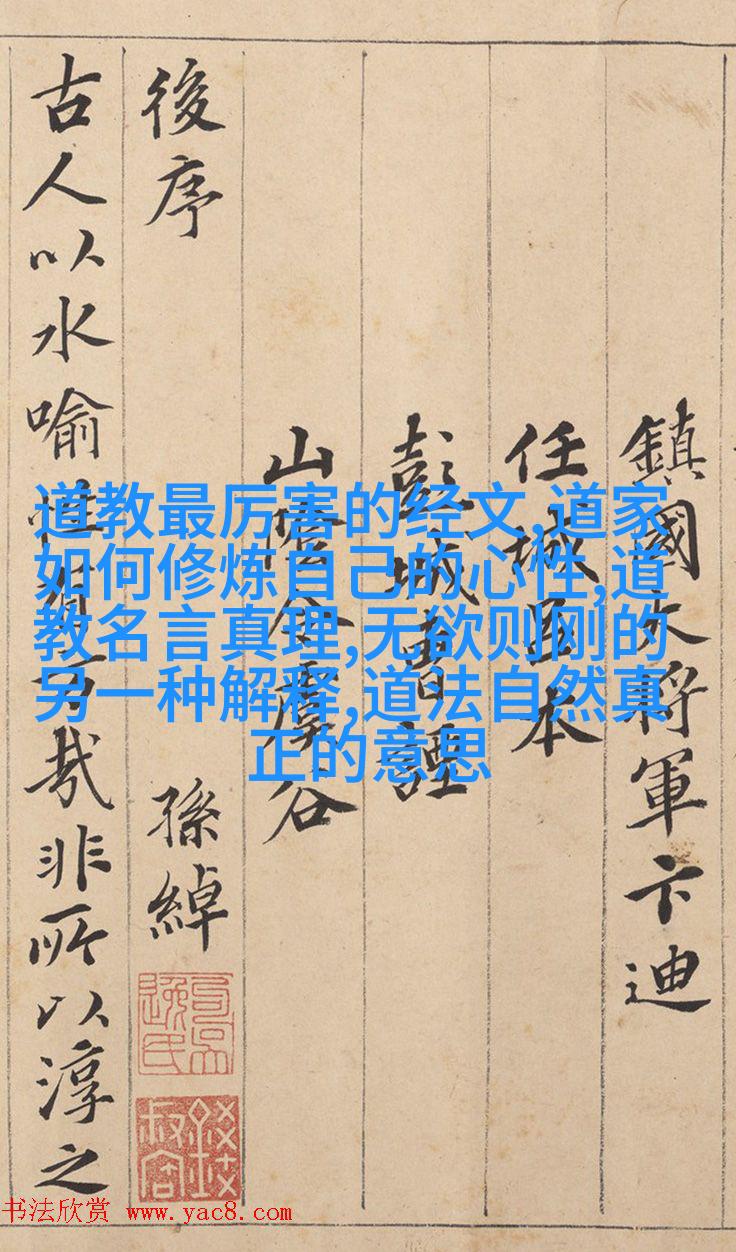 鎮國大將軍卞迪
任城呂本
彭城曹諲
山陰令虞谷
後序 孫綽
古人以水喻性有旨哉非所以淳之
道教最厉害的经文,道家
如何修炼自己的心性,道
教名言真理,无欲则刚的
另一种解释,道法自然真
正的意思
书法欣赏 www.yac8.com